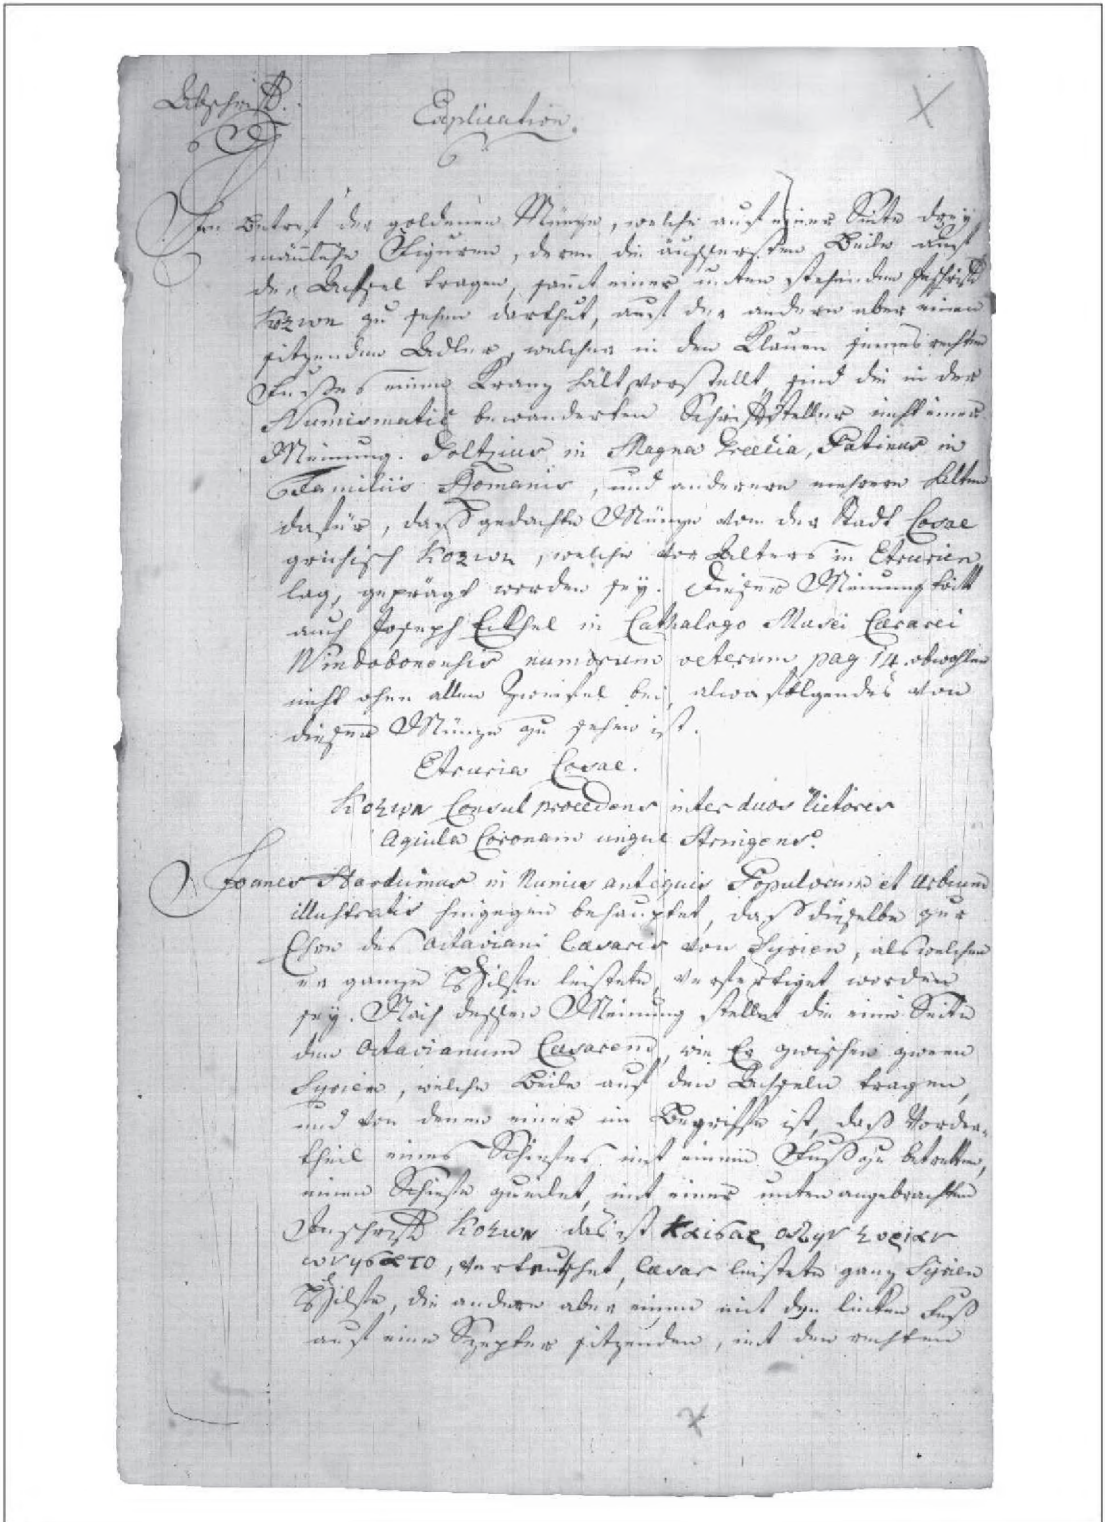 Abschrift.
Explication.
In Betref der goldenen Münze, welche auf einer Seite drey
mänliche Figuren, deren die äussersten Beile auf
der Achsel tragen, samt einer unten stehenden Inschrift
Κοζων zu sehen darthut, auf der andern aber einen
sitzenden Adler, welcher in den Klauen seines rechten
Fußes einen Kranz hält, vorstellt, sind die in der
Numismatic bewanderten Schriftsteller nicht einer
Meinung. Goltzius in Magna Grecia, Patinus in
Familiis Romanis, und anderen mehrere halten
dafür, daß gedachte Münze von der Stadt Cosae
grichisch Κοζων, welche vor Alters in Etrurien
lag, geprägt worden sey. Dieser Meinung tritt
auch Joseph Eckhel in Cathalogo Musei Caesarei
Windobonensis numorum veterum pag 14. obwohlen
nicht ohne allen Zweifel bei, alwo folgendes von
dieser Münze zu sehen ist.
Etruria Cosae.
Κοζων Consul procedens inter duos lictores
Aquila Coronam ungue stringens.
Joannes Harduinus in Numis antiquis Populorum et Urbium
illustratis hingegen behauptet, daß dieselbe zur
Ehre des Octaviani Caesaris von Syrien, als welchen
er ganze Hilfe leistete, verfertiget worden
sey. Nach dessen Meinung stellet die eine Seite
den Octavianum Caesarem, wie Er zwischen zween
Syrier, welche Beile auf den Achseln tragen,
und von denen einer im Begriffe ist, daß Vorder-
theil eines Schiefes mit einem Fuß zu betretten,
einen Schiefe zueilet, mit einer unten angebrachten
Inschrift Κοζων das ist Καισαρ οζην ζυριαν
ωνησατο, verteutschet, Caesar leistete ganz Syrien
Hilfe, die andere aber einen mit den linken Fuß
auf einen Szepter sitzenden, mit den rechten